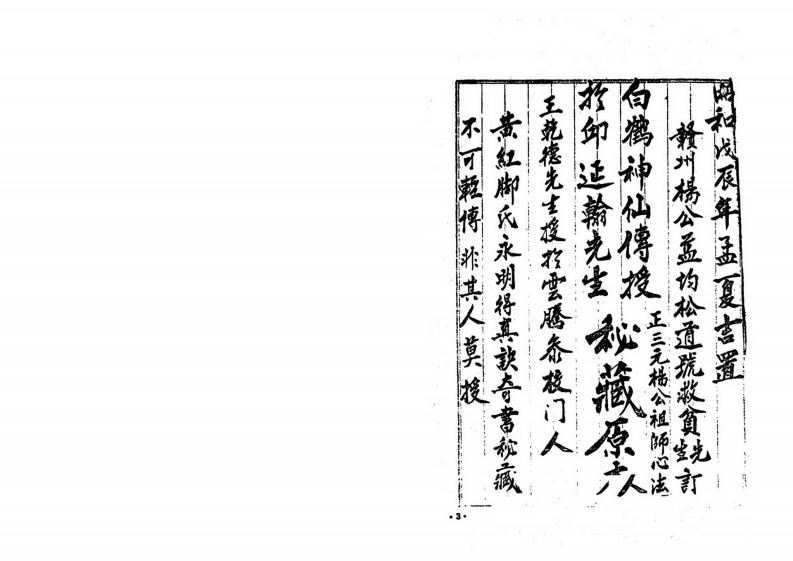 昭和戊辰年孟夏吉置
贛州楊公益均松道號救貧先生訂
正三元楊公祖師心法
白鶴神仙傳授
於邱延翰先生 秘藏原
人
王乾德先生授於雲騰叅校门人
黃紅脚氏永明得真訣奇書秘藏
不可輕傳非其人莫授
·3·